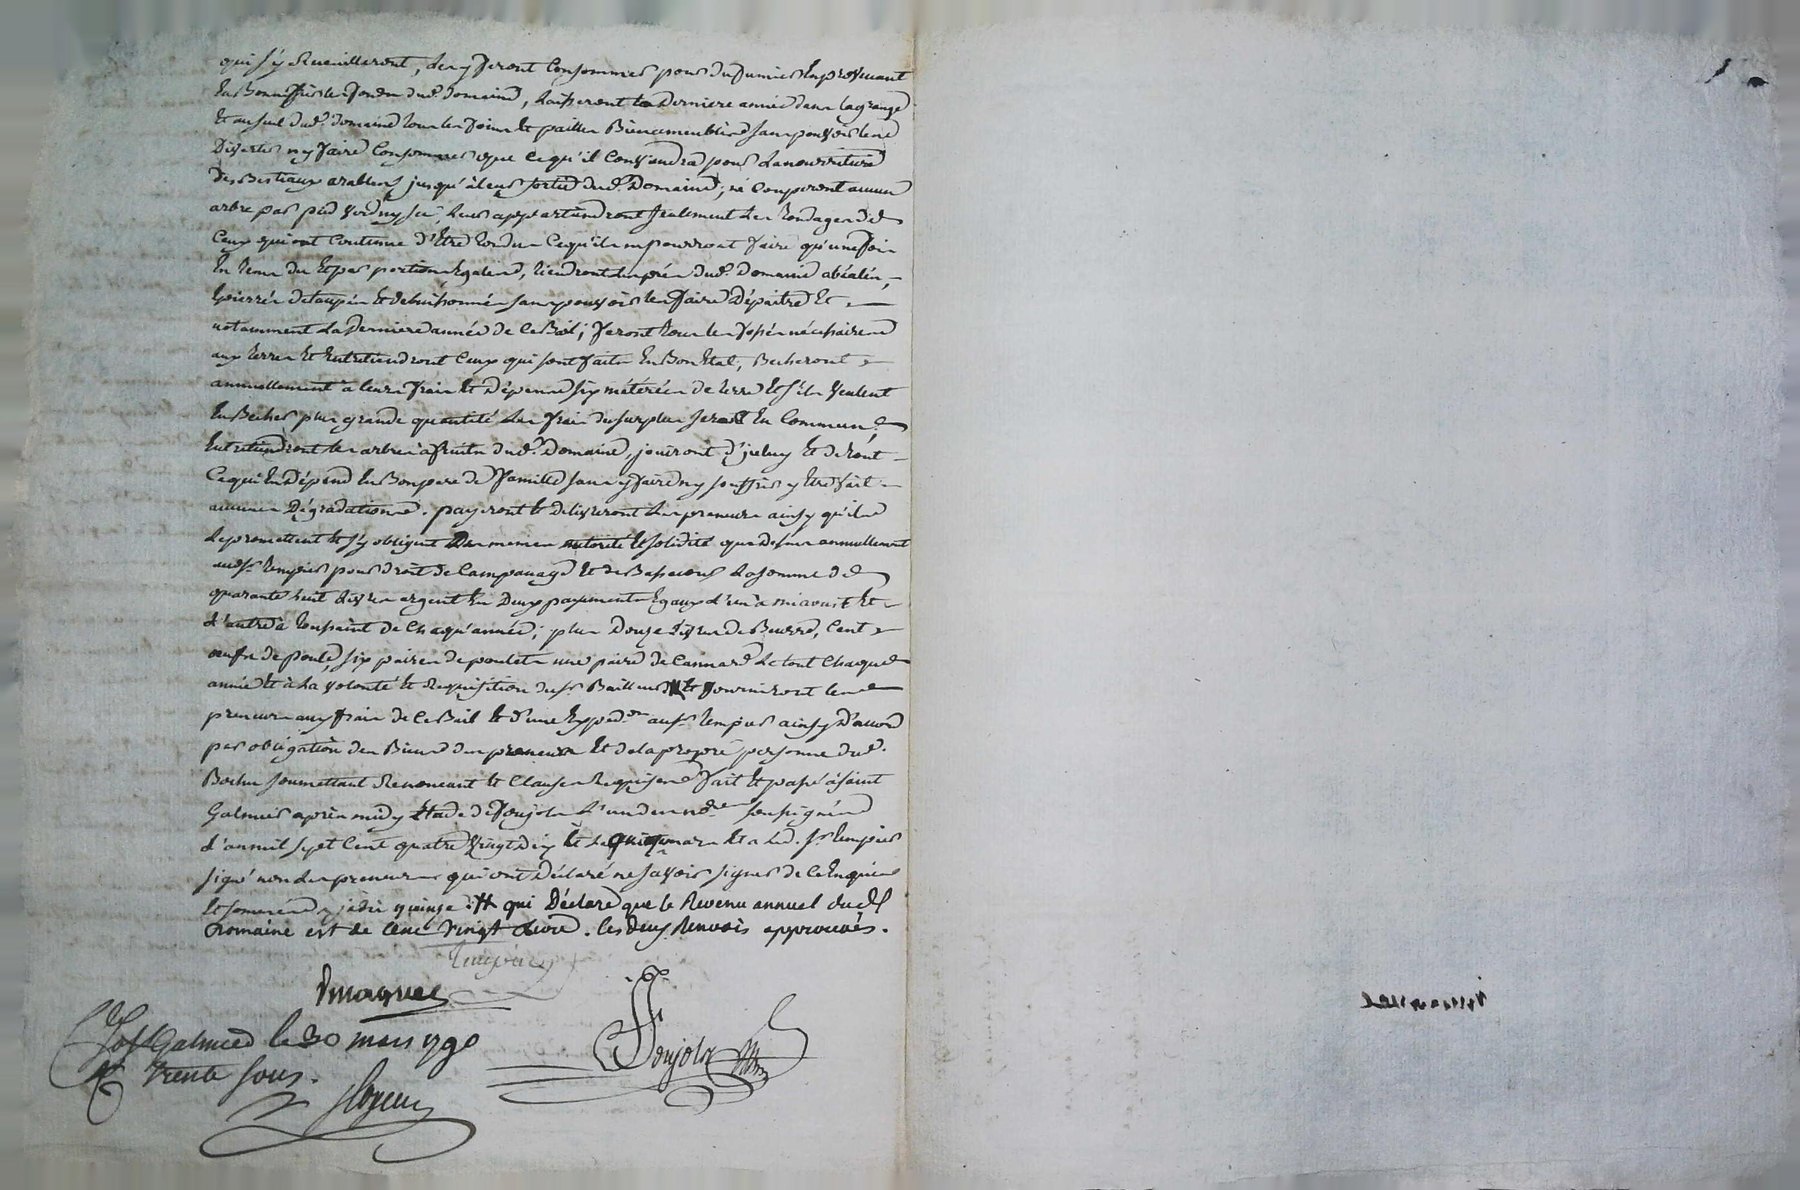 qui s'y recueilleront, les y feront consommer pour du fumier en provenant
en Bonniffier le fonds dud. domaine, laisseront la derniere année dans la grange
et au suel dud. domaine tous les foins et pailles Bien ameublés sans pouvoir les
divertir ny faire consommer que ce qu'il conviendra pour la nourriture
des Bestiaux arables jusqu'à leur sortie dud. Domaine; ne couperont aucun
arbre par pied verd ny sec, leur appartiendront seulement les tondages de
ceux qui ont coutume d'être tondus ce qu'ils ne pourront faire qu'une fois
en tems du et par portions Egales, tiendront les prés dud. domaine abéalés,
épierrés détaupés et debuissonnés sans pouvoir les faire dépaitre et
notamment la derniere année de ce Bail; feront tous les fossés nécessaires
aux terres et Entretiendront ceux qui sont faits En Bon Etat, Becheront
annuellement à leurs frais et dépens six métérées de terre et s'ils veulent
en Becher plus grande quantité les frais du surplus seront en commun,
Entretiendront les arbres à fruits dud. Domaine, jouiront d'iceluy et de tout
ce qui en dépend en Bon pere de famille sans y faire ny souffrir y être fait
aucunes dégradations. payeront et delivreront les preneurs ainsy qu'ils
le promettent et s'y obligent de meme autorité et solidité que dessus annuellement
aud. sr. tempier pour droit de Campanage et de Basse cour la somme de
quarante huit livres argent en deux payements Egaux l'un à mi aoust et
l'autre à toussaint de chaqu'année; plus douze livres de Beurre, cent
oeufs de poule, six paires de poulets une paire de Cannard le tout chaque
année et à la volonté et requisition dud. sr Bailleur # et fourniront les
preneurs aux frais de ce Bail et d'une Exped.on aud. sr tempier ainsy d'accord
par obligation des Biens des preneurs et de la propre personne dud.
Bochu soumettant Renonçant et Clauses Requises fait et passé à saint
Galmier après midy Etude de Foujols l'un des n.res soussignés
l'an mil sept cent quatre vingt dix et le quinze mars et a led. sr. tempier
signé non les preneurs qui ont déclaré ne savoir signer de ce Enquis
et sommés # qui Déclare que le Revenu annuel dud.
Domaine est de Cent vingt livre. les deux Renvois approuvés.
Foujols
a st Galmier le 30 mars 1790
R trente sous.